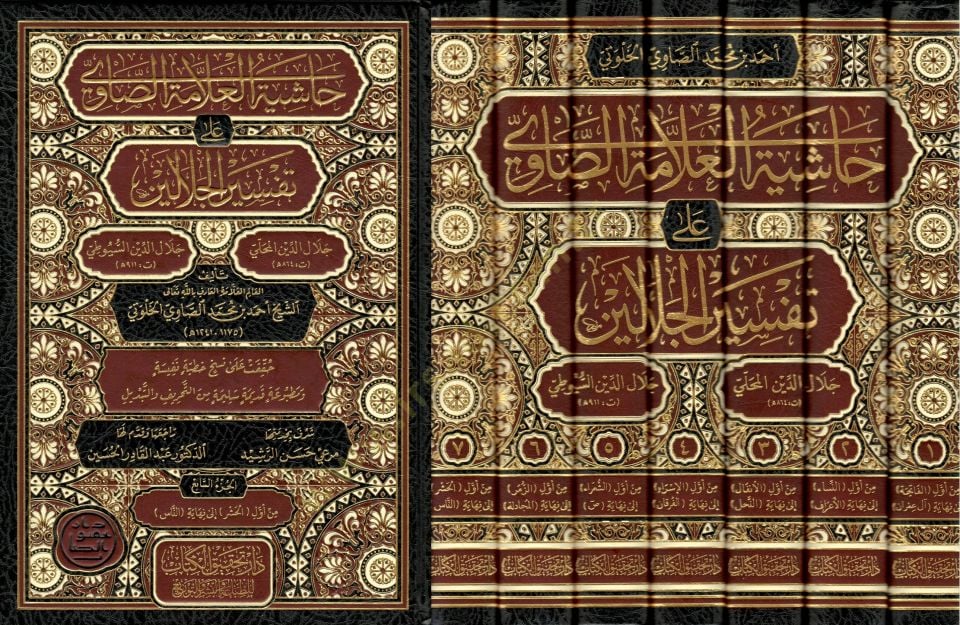 حاشية العلامة الصاوي
على
تفسير الجلالين
جلال الدين المحلي
(ت: ٨٦٤ هـ)
جلال الدين السيوطي
(ت: ٩١١ هـ)
تأليف
العالم العلامة العارف بالله تعالى
الشيخ أحمد بن محمد الصاوي الخلوتي
(١١٧٥ - ١٢٤١ هـ)
حققت على نسخ خطية نفيسة
ومطبوعة قديمة سليمة من التحريف والتبديل
شرف بخدمتها
مرعي حسن الرشيد
راجعها وقدم لها
الدكتور عبد القادر الحسين
الجزء السابع
من أول (الحشر) إلى نهاية (الناس)
دار تحقيق الكتاب
للطباعة والنشر والتوزيع
أحمد بن محمد الصاوي الخلوتي
حَاشِيَةُ العَلَّامَةِ الصَّاوِي
عَلَى
تَفْسِيرِ الجَلَالَيْنِ
جلال الدين المحلي
(ت: ٨٦٤ هـ)
جلال الدين السيوطي
(ت: ٩١١ هـ)
١
٢
٣
٤
٥
٦
٧
من أول (الفاتحة)
إلى نهاية (آل عمران)
من أول (النساء)
إلى نهاية (الأعراف)
من أول (الأنفال)
إلى نهاية (النحل)
من أول (الإسراء)
إلى نهاية (الفرقان)
من أول (الشعراء)
إلى نهاية (ص)
من أول (الزمر)
إلى نهاية (المجادلة)
من أول (الحشر)
إلى نهاية (الناس)
دار تحقيق الكتاب
دار تحقيق الكتاب
دار تحقيق الكتاب
دار تحقيق الكتاب
دار تحقيق الكتاب
دار تحقيق الكتاب
دار تحقيق الكتاب